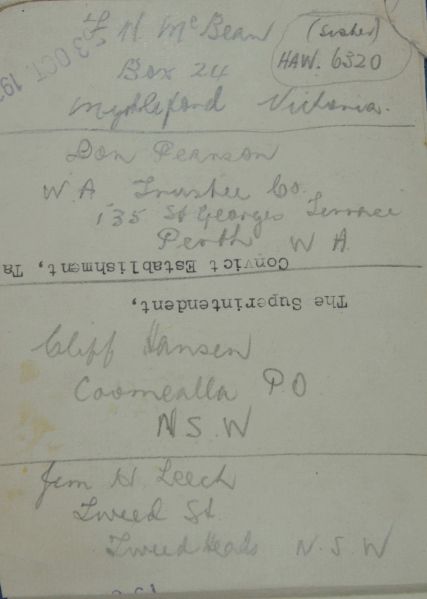 H McBean
(Sister)
HAW. 6320
Box 24
Myrtleford Victoria.
23 OCT. 19
Don Pearson
W A Trustee Co.
135 St Georges Terrace
Perth W A
Convict Establishment, Ta
The Superintendent,
Cliff Hansen
Coomealla P.O
N S. W
Jim H. Leech
Tweed St
Tweed Heads N. S. W